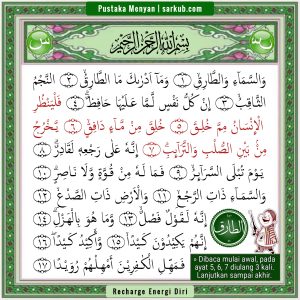 Pustaka Menyan | sarkub.com
بِسْمِ اللهِ الرَّحْمٰنِ الرَّحِيْمِ
وَالسَّمَاۤءِ وَالطَّارِقِۙ ۝١ وَمَآ اَدْرٰىكَ مَا الطَّارِقُۙ ۝٢ النَّجْمُ
الثَّاقِبُۙ ۝٣ اِنْ كُلُّ نَفْسٍ لَّمَّا عَلَيْهَا حَافِظٌۗ ۝٤ فَلْيَنْظُرِ
الْاِنْسَانُ مِمَّ خُلِقَ ۝٥ خُلِقَ مِنْ مَّاۤءٍ دَافِقٍۙ ۝٦ يَّخْرُجُ
مِنْۢ بَيْنِ الصُّلْبِ وَالتَّرَاۤىِٕبِۗ ۝٧ اِنَّهٗ عَلٰى رَجْعِهٖ لَقَادِرٌۗ ۝٨
يَوْمَ تُبْلَى السَّرَاۤىِٕرُۙ ۝٩ فَمَا لَهٗ مِنْ قُوَّةٍ وَّلَا نَاصِرٍۗ ۝١٠
وَالسَّمَاۤءِ ذَاتِ الرَّجْعِۙ ۝١١ وَالْاَرْضِ ذَاتِ الصَّدْعِۙ ۝١٢
اِنَّهٗ لَقَوْلٌ فَصْلٌۙ ۝١٣ وَّمَا هُوَ بِالْهَزْلِۗ ۝١٤
اِنَّهُمْ يَكِيْدُوْنَ كَيْدًاۙ ۝١٥ وَّاَكِيْدُ كَيْدًاۖ ۝١٦
فَمَهِّلِ الْكٰفِرِيْنَ اَمْهِلْهُمْ رُوَيْدًا ۝١٧
الطارق
» Dibaca mulai awal, pada
ayat 5, 6, 7 diulang 3 kali.
Lanjutkan sampai akhir.
Recharge Energi Diri